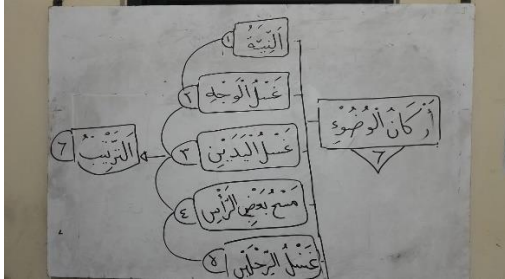 أَرْكَانُ الْوُضُوْءِ
٦
١ اَلنِّيَّةُ
٢ غَسْلُ الْوَجْهِ
٣ غَسْلُ الْيَدَيْنِ
٤ مَسْحُ بَعْضِ الرَّأْسِ
٥ غَسْلُ الرِّجْلَيْنِ
٦ اَلتَّرْتِيْبُ